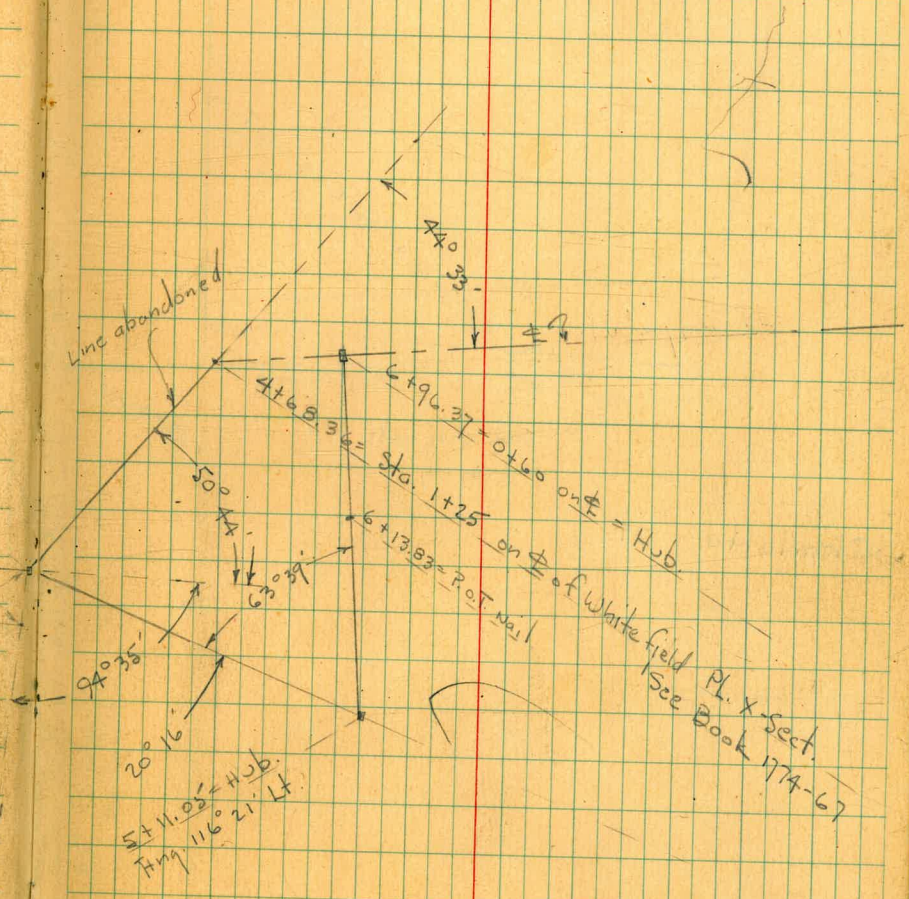 44° 33'
Line abandoned
℄
6+96.37 = 0+60 on ℄ = Hub.
4+68.36 = Sta. 1+25 on ℄ of Whitefield Pl. X-Sect.
See Book 1774-67
50° 44'
6+13.83 = P.O.T. Nail
63° 39'
94° 35'
20° 16'
5+11.05 = Hub.
Ang. 116° 21' Lt